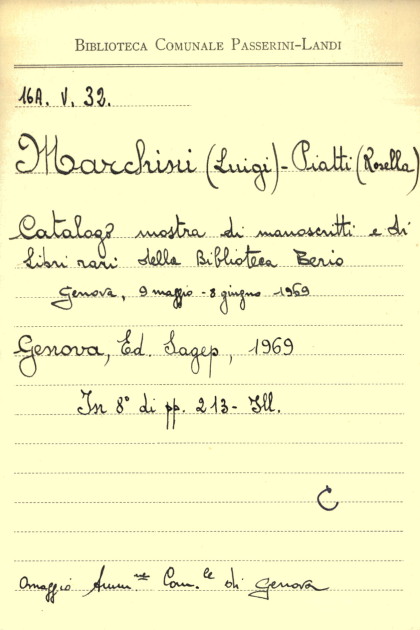 BIBLIOTECA COMUNALE PASSERINI-LANDI
16A. V. 32.
Marchini (Luigi) - Piatti (Rosella)
Catalogo mostra di manoscritti e di
libri rari della Biblioteca Berio
Genova, 9 maggio - 8 giugno 1969
Genova, Ed. Sagep, 1969
In 8° di pp. 213 - Ill.
C
Omaggio Amm.ne Com.le di Genova